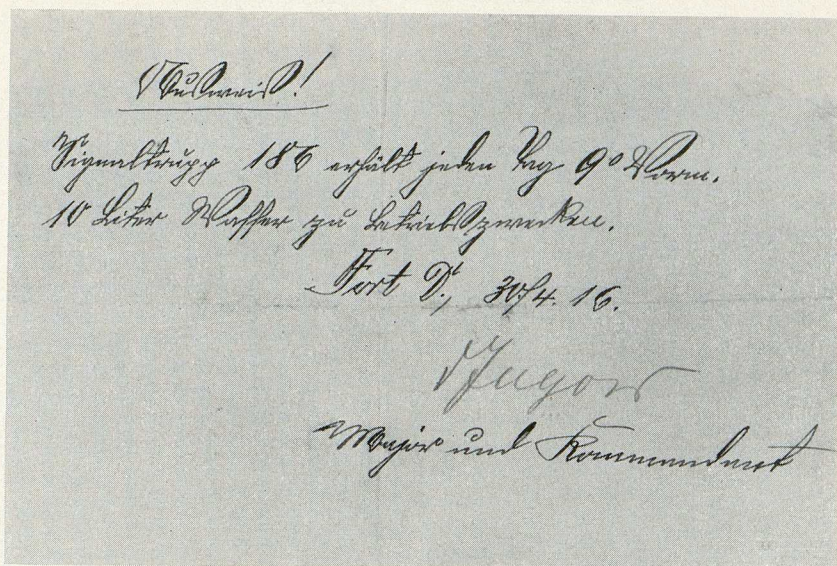 Ausweis!
Signaltrupp 186 erhält jeden Tag 9⁰ Vorm.
10 Liter Wasser zu Betriebszwecken.
Fort D., 30/4. 16.
Major und Kommandant